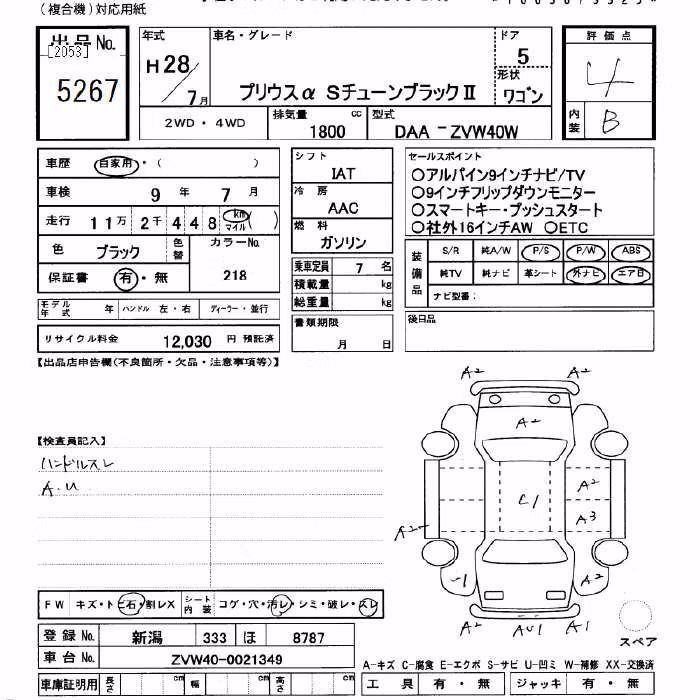 (複合機)対応用紙
出品No.
[2053]
5267
年式
H28/7月
車名・グレード
プリウスα SチューンブラックⅡ
ドア
5
形状
ワゴン
評価点
4
内装
B
2WD・4WD
排気量
1800 cc
型式
DAA-ZVW40W
車歴 自家用・( )
車検 9年 7月
走行 11万 2千 4 4 8 km マイル ( )
色 ブラック 色替 カラーNo. 218
保証書 有・無
モデル年式 年 ハンドル 左・右 ディーラー・並行
リサイクル料金 12,030 円 預託済
シフト
IAT
冷房
AAC
燃料
ガソリン
乗車定員 7 名
積載量 kg
総重量 kg
書類期限
月 日
セールスポイント
○アルパイン9インチナビ/TV
○9インチフリップダウンモニター
○スマートキー・プッシュスタート
○社外16インチAW ○ETC
装備品
S/R 純A/W P/S P/W ABS
純TV 純ナビ 革シート 外ナビ エアB
ナビ型番:
後日品
【出品店申告欄(不良箇所・欠品・注意事項等)】
【検査員記入】
ハンドルスレ
A.U
A2 A2
A2
A2
C1
A3
A2
A2
A2 AU1 A1
スペア
FW キズ・トビ石・割レX シート内装 コゲ・穴・汚レ・シミ・破レ・スレ
登録No. 新潟 333 ほ 8787
車台No. ZVW40-0021349
車庫証明用 長さ cm 幅 cm 高さ cm
A-キズ C-腐食 E-エクボ S-サビ U-凹ミ W-補修 XX-交換済
工具 有・無 ジャッキ 有・無